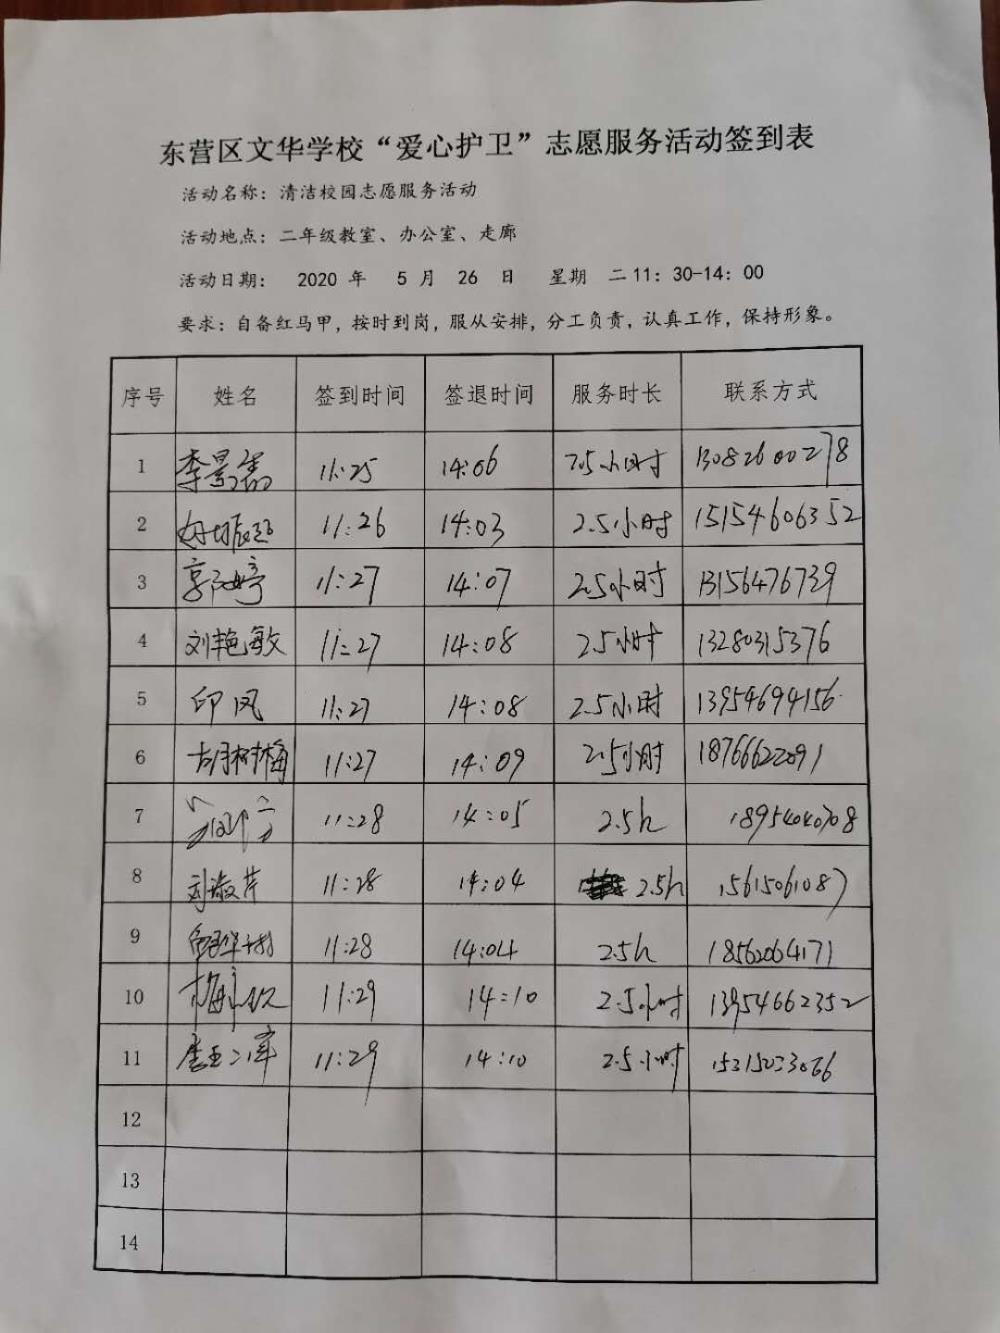 东营区文华学校“爱心护卫”志愿服务活动签到表
活动名称：清洁校园志愿服务活动
活动地点：二年级教室、办公室、走廊
活动日期： 2020 年 5 月 26 日 星期 二 11：30-14：00
要求：自备红马甲，按时到岗，服从安排，分工负责，认真工作，保持形象。
序号 姓名 签到时间 签退时间 服务时长 联系方式
1 11:25 14:06 2.5小时 13082600278
2 11:26 14:03 2.5小时 15154606352
3 11:27 14:07 2.5小时 13156476739
4 刘艳敏 11:27 14:08 2.5小时 13280315376
5 印凤 11:27 14:08 2.5小时 13954694156
6 胡树梅 11:27 14:09 2.5小时 18766622091
7 11:28 14:05 2.5h 18954040708
8 刘淑芹 11:28 14:04 2.5h 15615061087
9 11:28 14:04 2.5h 18562064171
10 11:29 14:10 2.5小时 13954662352
11 11:29 14:10 2.5小时 15315033066
12
13
14